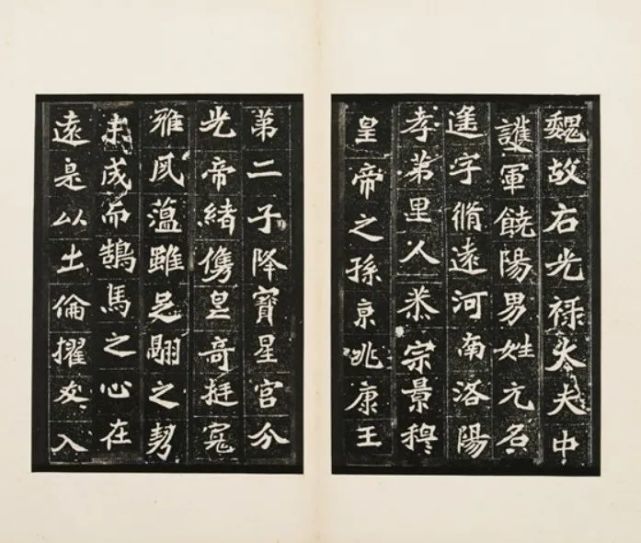 魏故右光禄大夫中
護軍饒陽男姓元名
遙字脩遠河南洛陽
孝弟里人恭宗景穆
皇帝之孫京兆康王
第二子降寶星官分
光帝緒儁皇奇挺寬
雅夙蘊雖足翮之勢
未成而鵠馬之心在
遠是以士倫擢冠入